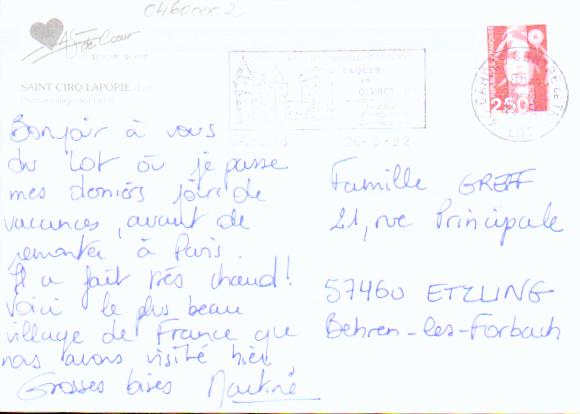 0460002
AS de Cœur
SAINT CIRQ LAPOPIE
Premier village de France
2,50
REPUBLIQUE FRANÇAISE
Bonjour à vous
du Lot où je passe
mes derniers jours de
vacances, avant de
remonter à Paris.
Il a fait très chaud!
Voici le plus beau
village de France que
nous avons visité hier
Grosses bises Martine
Famille GREFF
21, rue Principale
57460 ETZLING
Behren-les-Forbach